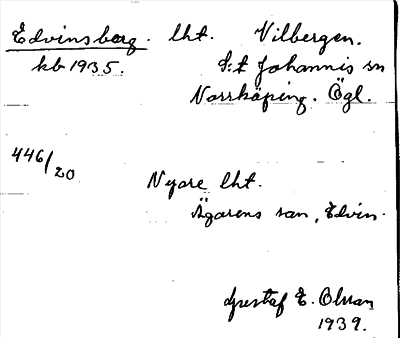 Edvinsberg. lht. Vilbergen.
kb 1935. S:t Johannis sn
Norrköping. Ögl.
446/20
Nyare lht.
Ägarens son, Edvin.
Gustaf E. Olsson
1939.